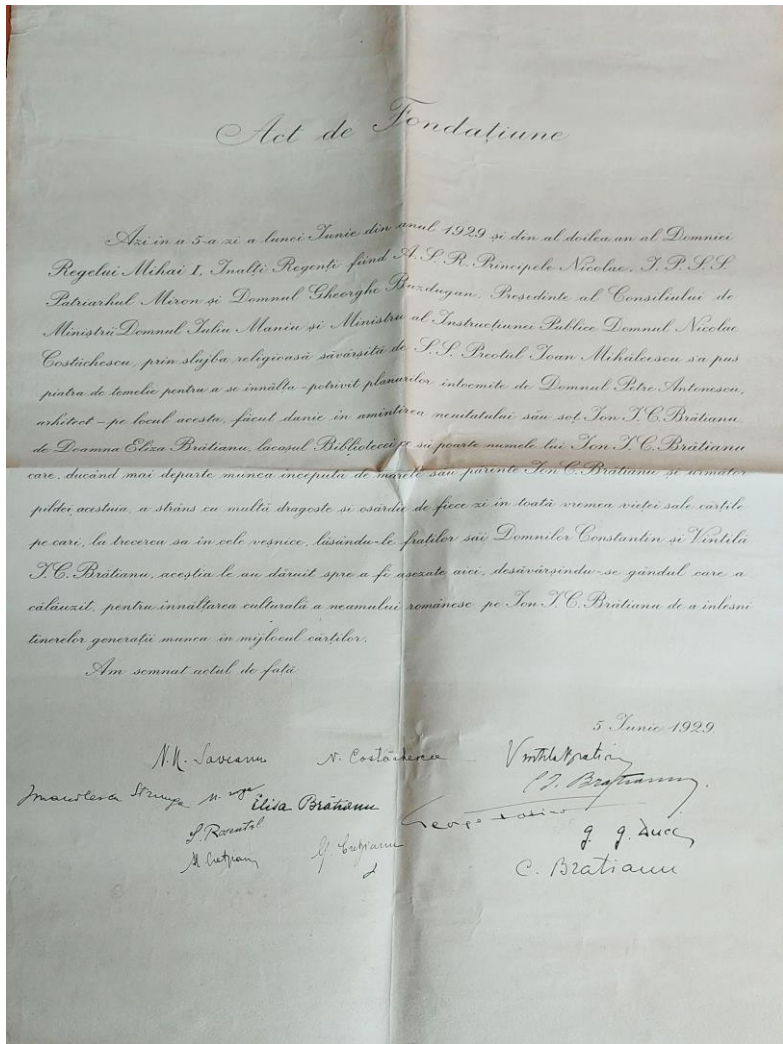 Act de Fondațiune
Azi in a 5-a zi a lunei Iunie din anul 1929 și din al doilea an al Domniei
Regelui Mihai I, Inalți Regenți fiind A.S.R. Principele Nicolae, I.P.S.S.
Patriarhul Miron și Domnul Gheorghe Buzdugan, Președinte al Consiliului de
Miniștri Domnul Iuliu Maniu și Ministru al Instrucțiunei Publice Domnul Nicolae
Costăchescu, prin slujba religioasă săvârșită de S.S. Preotul Ioan Mihălcescu s'a pus
piatra de temelie pentru a se înnălța - potrivit planurilor intocmite de Domnul Petre Antonescu,
arhitect - pe locul acesta, făcut danie in amintirea neuitatului său soț Ion I.C. Brătianu,
de Doamna Eliza Brătianu, lacașul Bibliotecii ce să poarte numele lui Ion I.C. Brătianu
care, ducând mai departe munca incepută de marele său părinte Ion C. Brătianu și următor
pildei acestuia, a strâns cu multă dragoste și osârdie de fiece zi in toată vremea vieței sale cărțile
pe cari, la trecerea sa in cele veșnice, lăsându-le fraților săi Domnilor Constantin și Vintilă
I.C. Brătianu, aceștia le au dăruit spre a fi așezate aici, desăvârșindu-se gândul care a
călăuzit, pentru innălțarea culturală a neamului românesc pe Ion I.C. Brătianu de a inlesni
tinerelor generații munca in mijlocul cărților.
Am semnat actul de față
5 Iunie 1929.
N.N. Saveanu N. Costăchescu Vintila Bratianu
C.I. Brătianu
Elisa Brătianu
S. Rosental
I. G. Duca
C. Bratianu